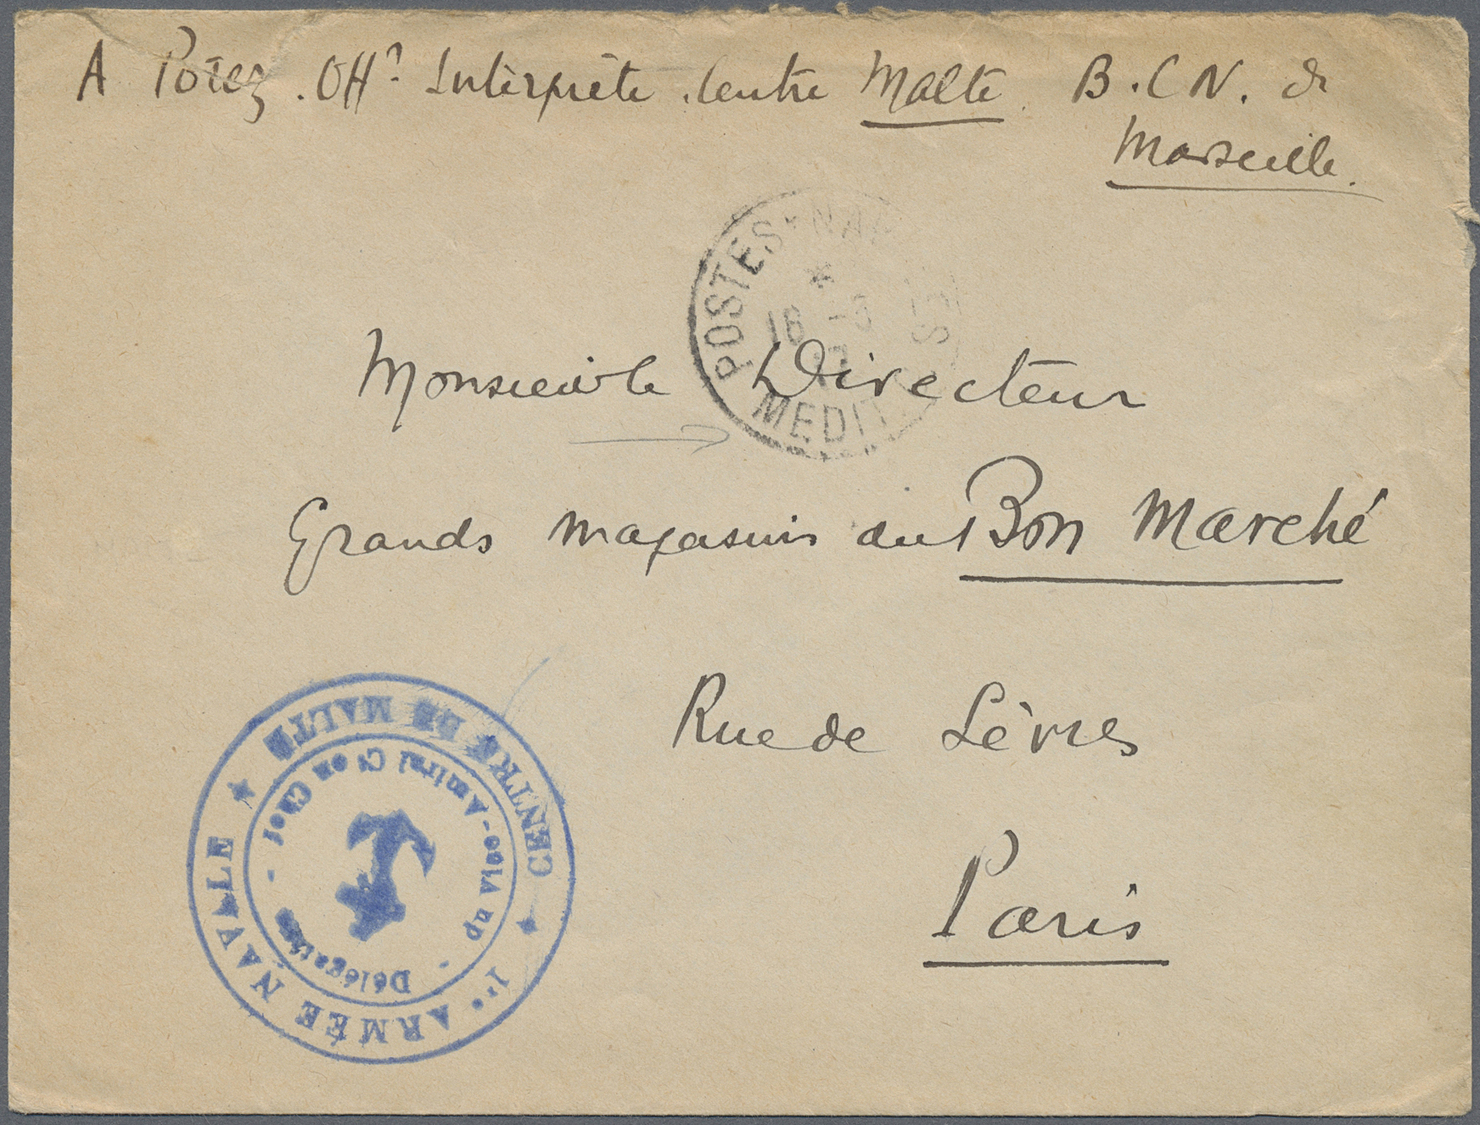 A Potez. Off? Interprète. Centre Malte. B.C.N. de
Marseille.
POSTES NAV
*
16 -3
17
MEDIT
Monsieur le Directeur
Grands Magasins du Bon Marché
Rue de Sèvres
Paris
1re ARMÉE NAVALE ★ CENTRE DE MALTE ★
Délégation - du Vice-Amiral Ct en Chef -